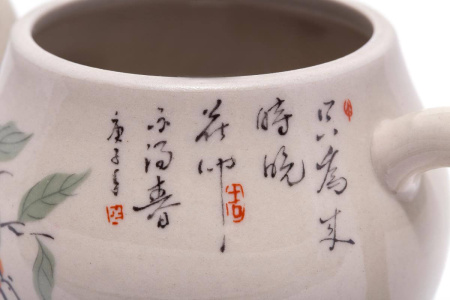 只為来
時晚
花開
不得春
庚子年